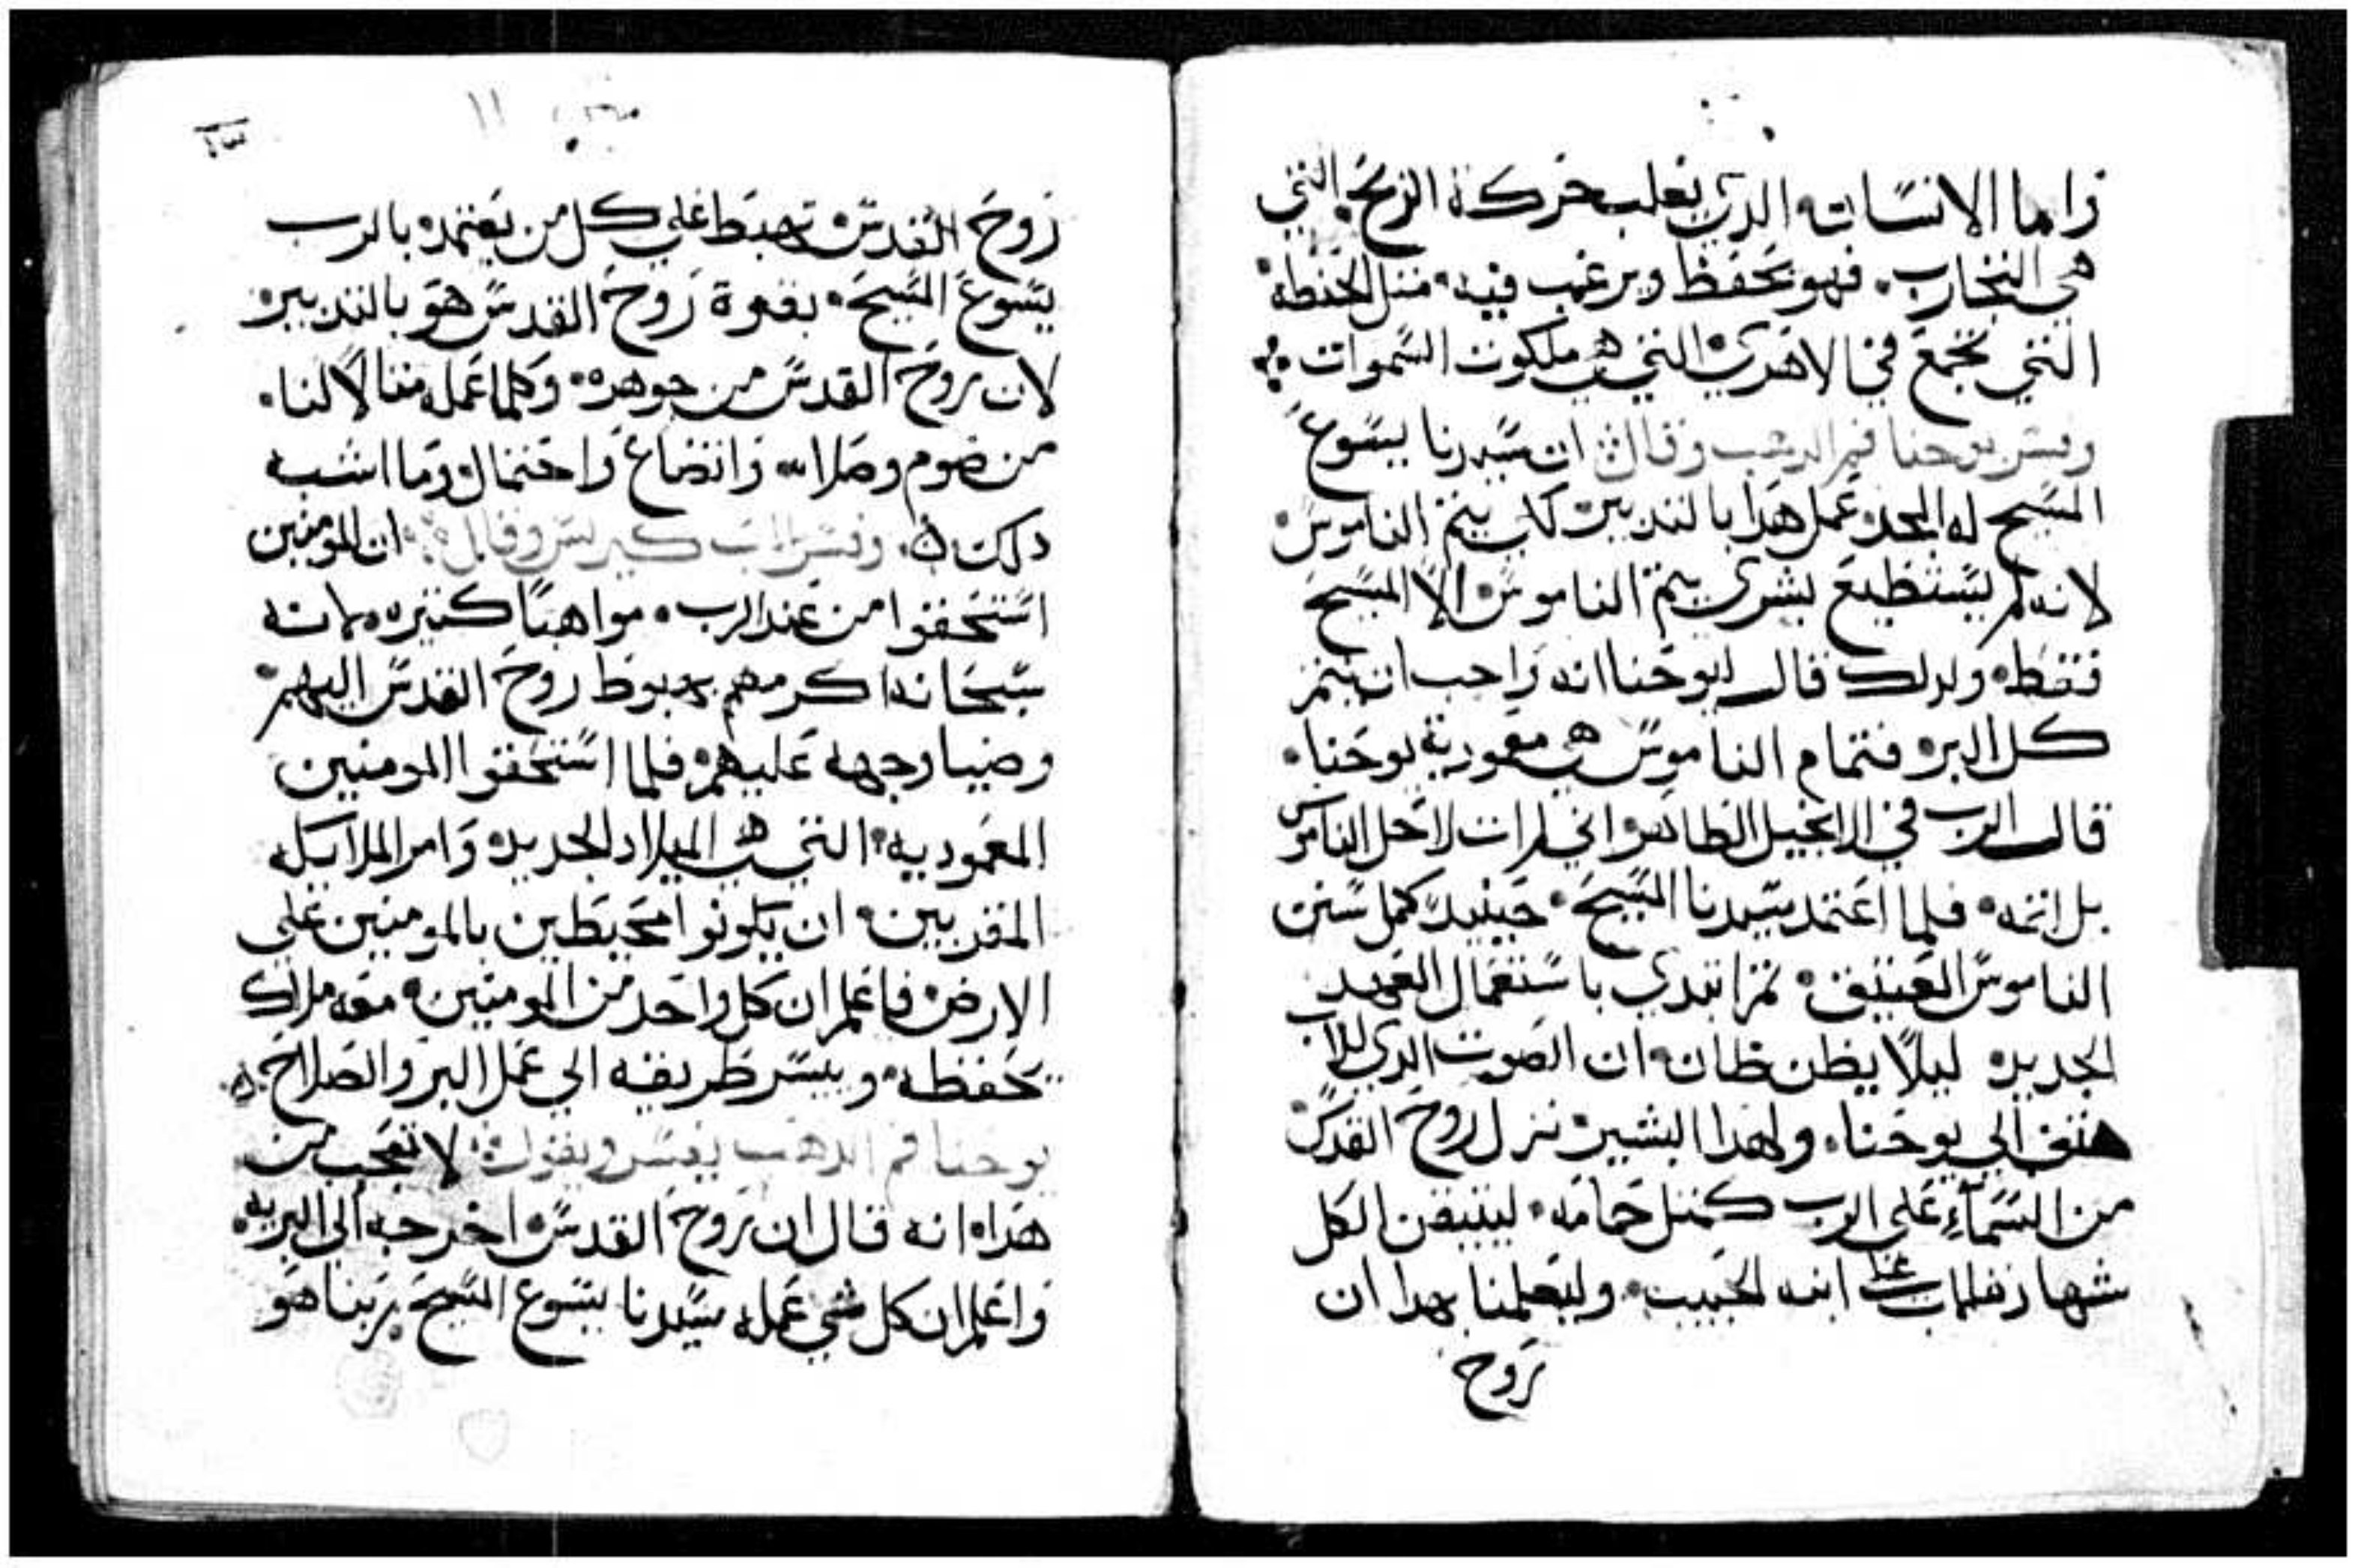 واما الانسان الدي يغلب حركة الريح التي
هي التجارب. فهو يحفظ ويرغب فيه مثل الحنطه
التي تجمع في الاهري التي هي ملكوت السموات
وفسر يوحنا فم الدهب وقال ان سيدنا يسوع
المسيح له المجد عمل هدا بالتدبير كاب يتم الناموس
لانه لم يستطيع بشري يتم الناموس الا المسيح
فقط ولدلك قال ليوحنا انه واجب ان يتم
كل البر فتمام الناموس هي معمودية يوحنا.
قال الرب في الانجيل الطاهر اني لم ات لاحل الناموس
بل اتمه فلما اعتمد سيدنا المسيح حينيد كمل سنن
الناموس العتيق ثم ابتدي باستعمال العهد
الجديد ليلا يظن ظان ان الصوت الدي للاب
هتف الي يوحنا. ولهدا البشير نزل روح القدس
من السماء علي الرب كمثل حمامه ليتيقن الكل
شهادة الاب عن ابنه الحبيب. وليعلمنا بهدا ان
روح
١١
١٣
روح القدس تهبط علي كل من يعتمد بالرب
يسوع المسيح بقوة روح القدس هو بالتدبير
لان روح القدس من جوهره وكلما عمله مثالا لنا.
من صوم وصلاه واتضاع واحتمال وما اشبه
دلك وفسر الاب كيرلس وقال ان المومنين
استحقوا من عند الرب مواهبا كثيره لانه
سبحانه اكرمهم بهبوط روح القدس اليهم
وضيا وجهه عليهم فلما استحقوا المومنين
المعموديه التي هي الميلاد الجديد وامر الملايكه
المقربين ان يكونوا محيطين بالمومنين علي
الارض فاعلم ان كل واحد من المومنين معه ملاك
يحفظه وييسر طريقه الي عمل البر والصلاح
يوحنا فم الدهب يفسر ويقول لا تعجب من
هدا انه قال ان روح القدس اخرجه الي البريه
واعلم ان كل شي عمله سيدنا يسوع المسيح ربنا هو